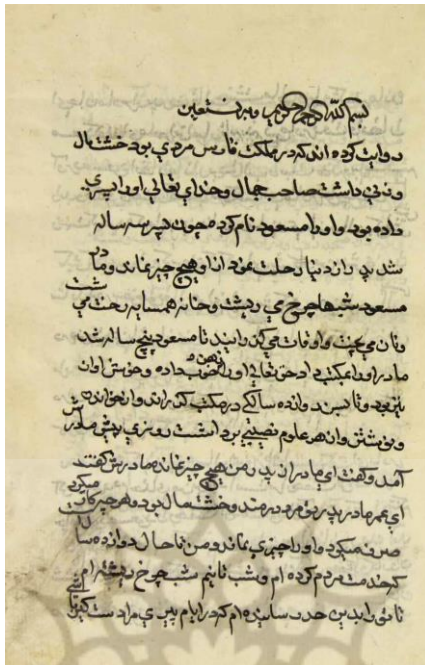 بسم الله الرحمن الرحيم وبه نستعين
روايت كرده اند كه در مملكت فارس مردي بود خشتمال
و زني داشت صاحب جمال و خداي تعالي او را پسري
داده بود و او را مسعود نام كرده چون پسر سه ساله
شد پدر از دنيا رحلت نمود از او هيچ چيز نماند و مادر
مسعود شبها چرخ مي رشت و خانه همسايه رخت مي شست
و نان مي پخت و اوقات مي كذرانيد تا مسعود پنج ساله شد
مادر او را بمكتب داد حق تعالي او را ذهن خوب داده و خوش اوان
نيز بود و تا بسن دوازده سالكي در مكتب كذراند و از خواندن
و نوشتن و از هر علوم نصيبي برداشت روزي پيش مادرش
آمد و كفت اي مادر از پدر من هيچ چيز نمانده مادرش كفت
اي عمر مادر پدر تو مرد دردمند و خشتمال بود و هر چه كار ميكرد
صرف ميكرد و او را چيزي نماند و من تا حال دوازده سال
كه خدمت مردم كرده ام و شب تا نيم شب چرخ رشته ام
تا تو را بدين حد رسانيده ام كه در ايام پيري مرا دست كير باشي